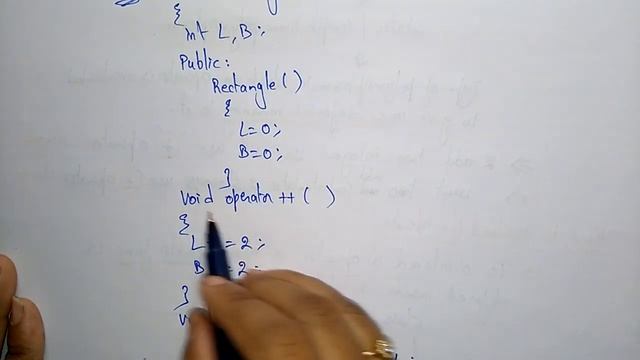 {
int L, B;
Public:
Rectangle ( )
{
L=0;
B=0;
}
void operator ++ ( )
{
L = 2;
B = 2;
}